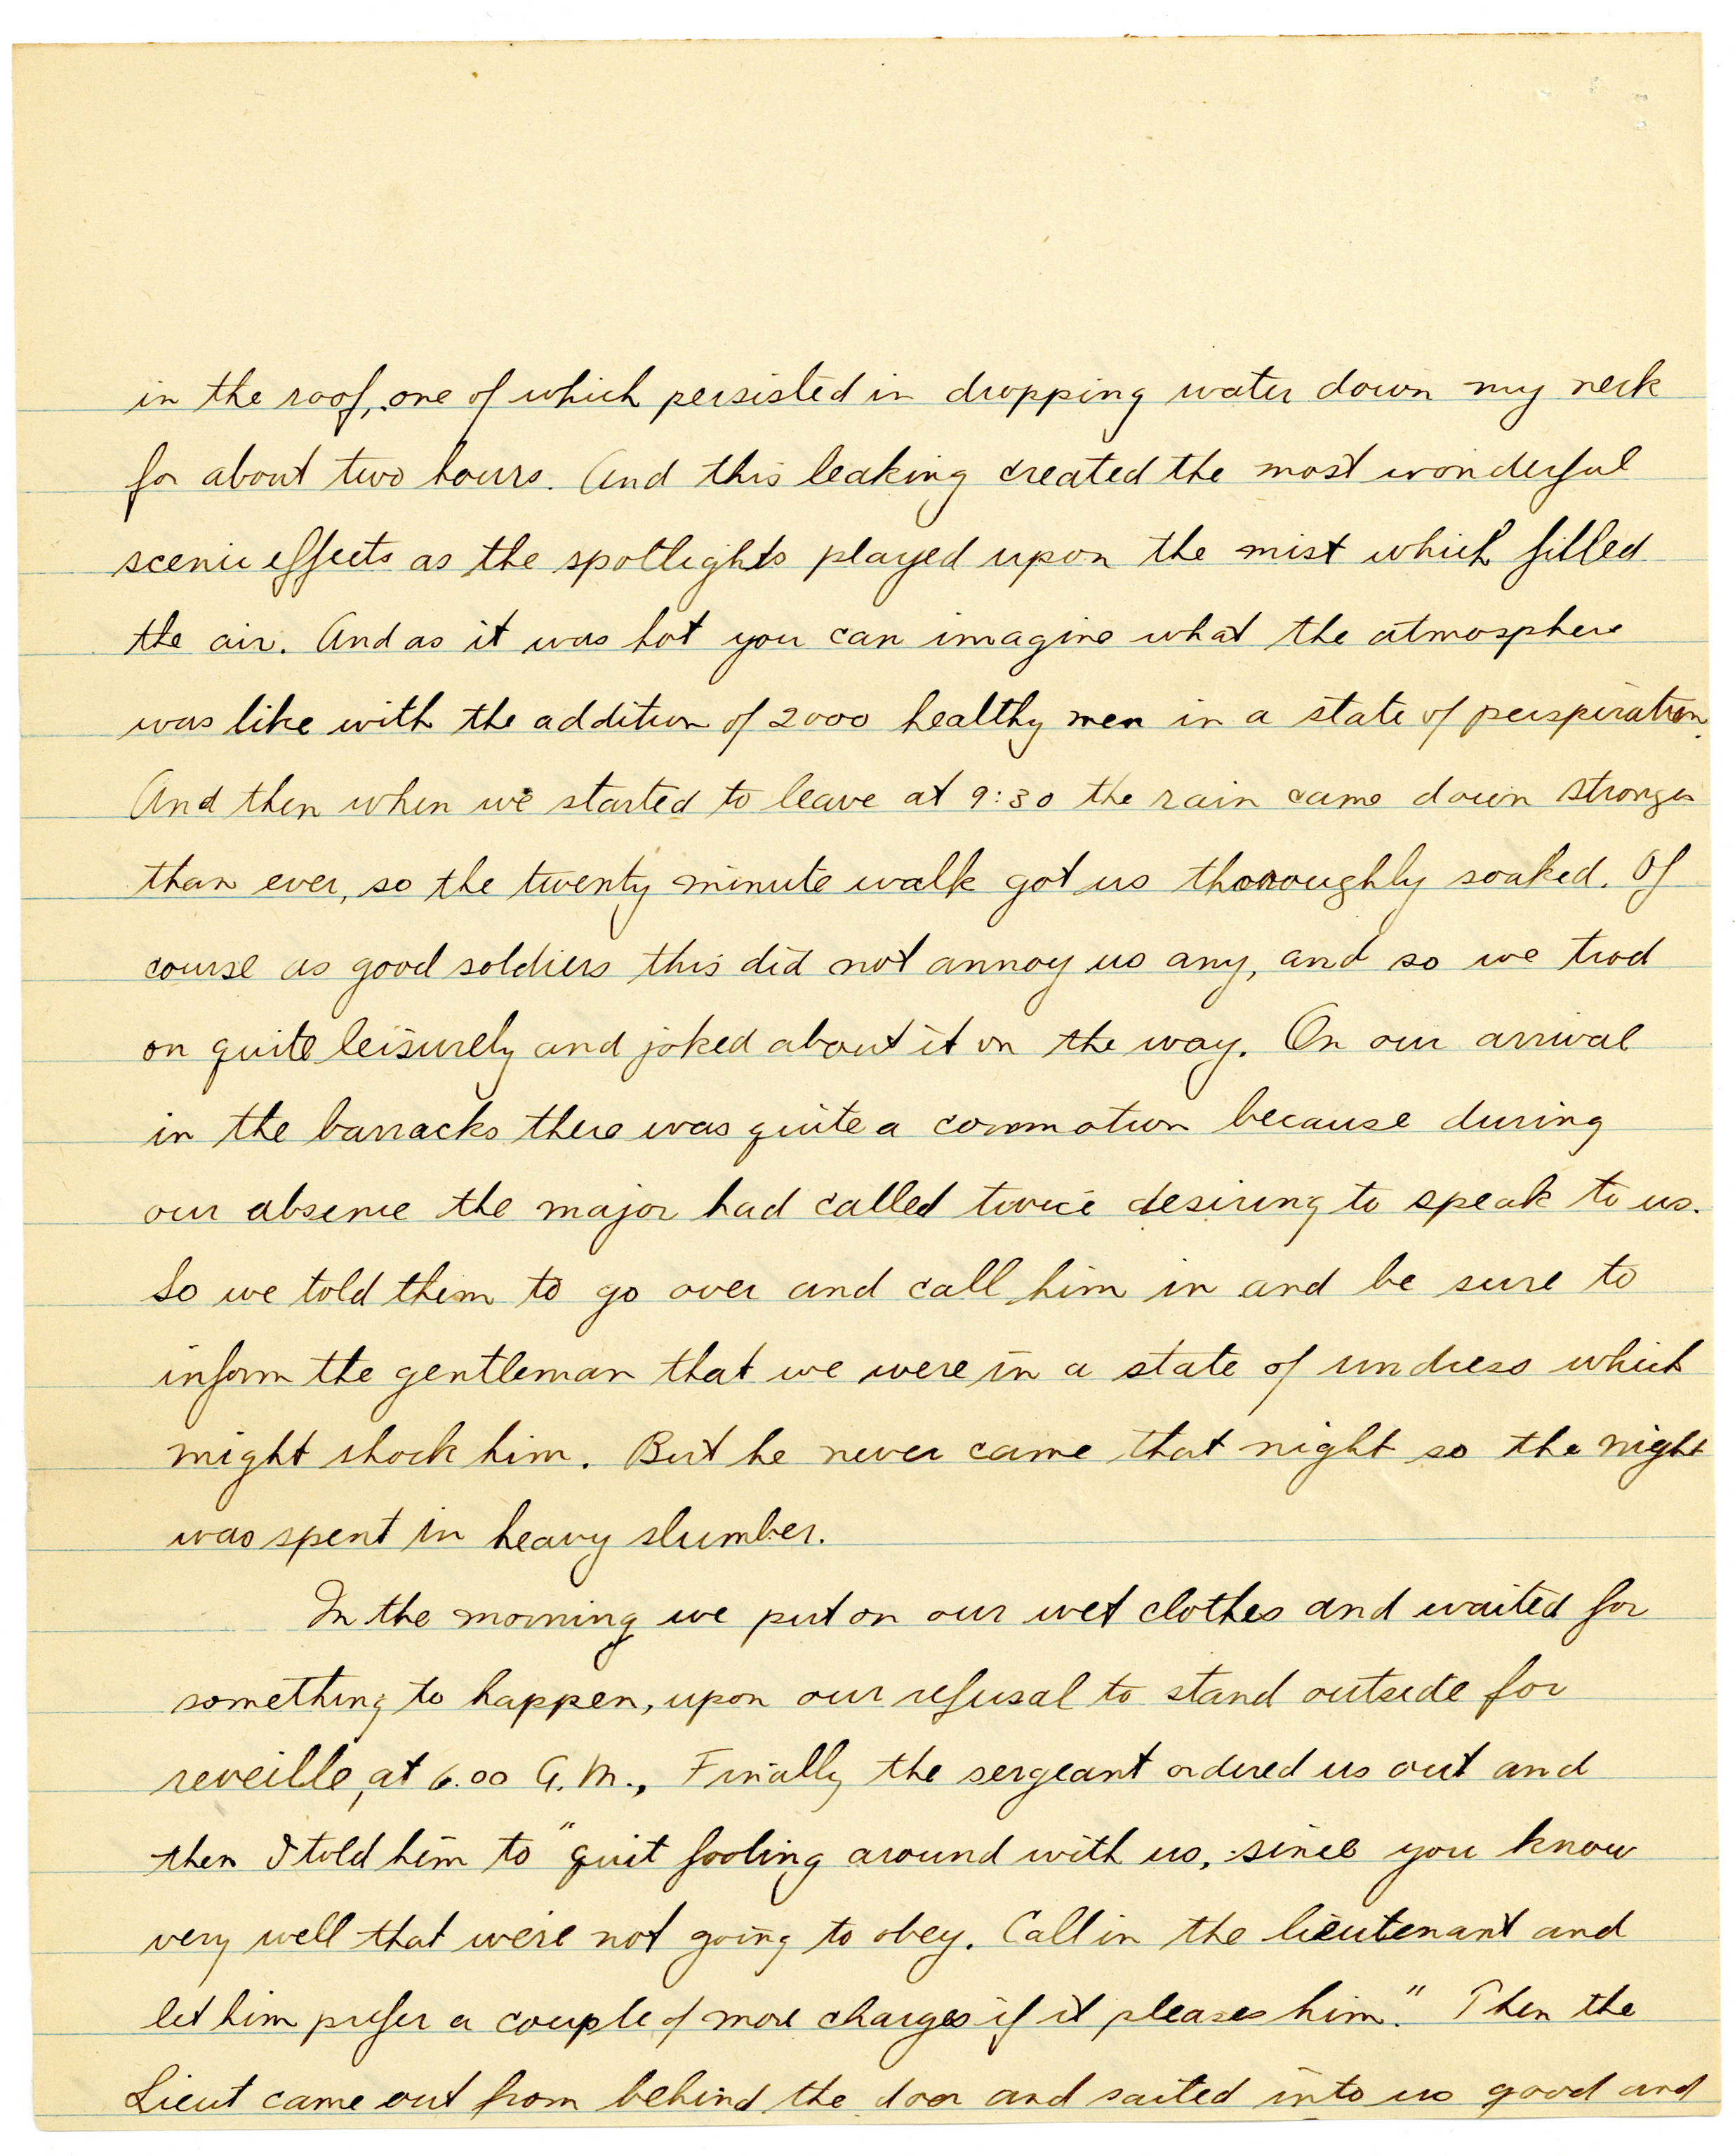 in the roof, one of which persisted in dropping water down my neck
for about two hours. And this leaking created the most wonderful
scenic effects as the spotlights played upon the mist which filled
the air. And as it was hot you can imagine what the atmosphere
was like with the addition of 2000 healthy men in a state of perspiration.
And then when we started to leave at 9:30 the rain came down stronger
than ever, so the twenty minute walk got us thoroughly soaked. Of
course as good soldiers this did not annoy us any, and so we trod
on quite leisurely and joked about it on the way. On our arrival
in the barracks there was quite a commotion because during
our absence the major had called twice desiring to speak to us.
So we told them to go over and call him in and be sure to
inform the gentleman that we were in a state of undress which
might shock him. But he never came that night so the night
was spent in heavy slumber.
In the morning we put on our wet clothes and waited for
something to happen, upon our refusal to stand outside for
reveille, at 6.00 A.M., Finally the sergeant ordered us out and
then I told him to "quit fooling around with us, since you know
very well that we're not going to obey. Call in the lieutenant and
let him prefer a couple of more charges if it pleases him." Then the
Lieut came out from behind the door and sailed into us good and